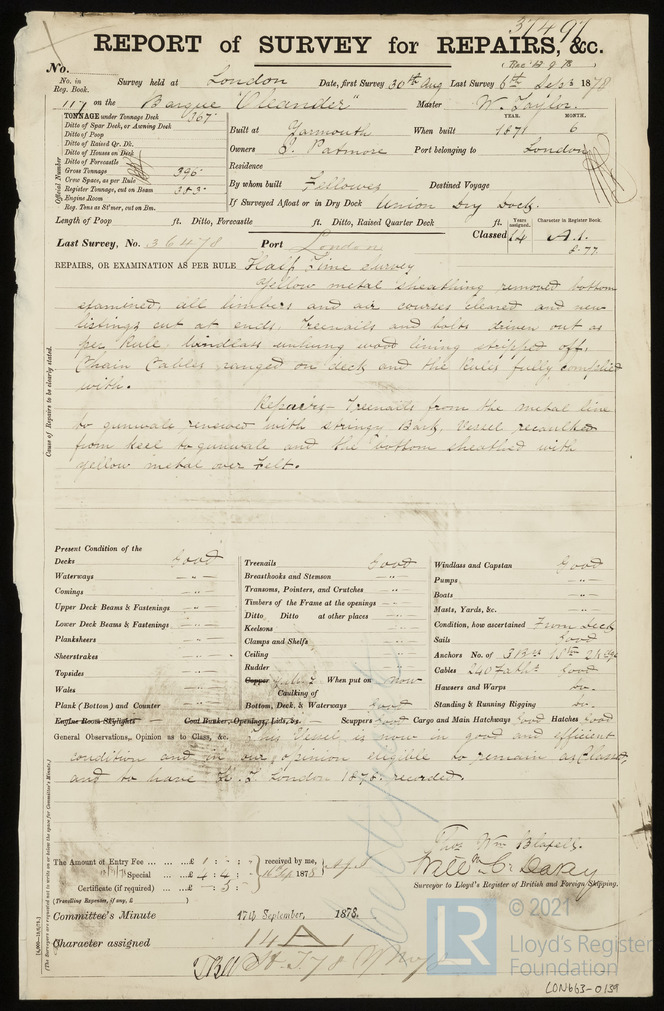 37497
REPORT of SURVEY for REPAIRS, &c.
No.
No. in Reg. Book. Survey held at London Date, first Survey 30th Aug Last Survey 6th Sept 1878
117 on the Barque "Oleander" Master W. Taylor.
TONNAGE under Tonnage Deck 367
Ditto of Spar Deck, or Awning Deck
Ditto of Poop
Ditto of Raised Qr. Dk.
Ditto of Houses on Deck
Ditto of Forecastle
Gross Tonnage 396
Crew Space, as per Rule
Register Tonnage, cut on Beam 383
Engine Room
Reg. Tons as St'mer, cut on Bm.
Official Number
Built at Yarmouth When built YEAR. 1871 MONTH. 6
Owners Patmore Port belonging to London
Residence
By whom built Fellowes Destined Voyage
If Surveyed Afloat or in Dry Dock Union Dry Dock.
Length of Poop ft. Ditto, Forecastle ft. Ditto, Raised Quarter Deck ft.
Years assigned. Character in Register Book.
Last Survey, No. 36478 Port London Classed 14 A.1. 8.77
REPAIRS, OR EXAMINATION AS PER RULE Half Time Survey
Yellow metal sheathing removed bottom
examined, all limbers and air courses cleared and new
listings cut at ends. Treenails and bolts driven out as
per Rule. Windlass unhung wood lining stripped off.
Chain Cables ranged on deck and the Rules fully complied
with.
Repairs - Treenails from the metal line
to gunwale renewed with stringy Bark, Vessel recaulked
from keel to gunwale and the bottom sheathed with
yellow metal over Felt.
Cause of Repairs to be clearly stated.
Present Condition of the
Decks Good
Waterways - " -
Comings - " -
Upper Deck Beams & Fastenings - " -
Lower Deck Beams & Fastenings - " -
Planksheers - " -
Sheerstrakes - " -
Topsides - " -
Wales - " -
Plank (Bottom) and Counter - " -
Treenails Good
Breasthooks and Stemson - " -
Transoms, Pointers, and Crutches - " -
Timbers of the Frame at the openings - " -
Ditto Ditto at other places - " -
Keelsons - " -
Clamps and Shelfs - " -
Ceiling - " -
Rudder - " -
Copper When put on now
Caulking of
Bottom, Deck, & Waterways Good
Windlass and Capstan Good
Pumps - " -
Boats - " -
Masts, Yards, &c. - " -
Condition, how ascertained From Deck
Sails Good
Anchors No. of
Cables 240 Faths Good
Hawsers and Warps
Standing & Running Rigging
Engine Room Skylights Coal Bunker, Openings, Lids, &c. Scuppers Good Cargo and Main Hatchways Good Hatches Good
General Observations, Opinion as to Class, &c. This Vessel is now in good and efficient
condition and in our opinion eligible to remain as Classed,
and to have H. T. London 1878. recorded.
The Amount of Entry Fee £ 1 : :
Special £ 4 : 4 :
Certificate (if required) £ - 5 :
received by me, 1878
(Travelling Expenses, if any, £ )
Surveyor to Lloyd's Register of British and Foreign Shipping.
Committee's Minute 17th September, 1878.
Character assigned 14 A 1
(The Surveyors are requested not to write on or below the space for Committee's Minute.)
LR
© 2021
Lloyd's Register
Foundation
LON663-0139